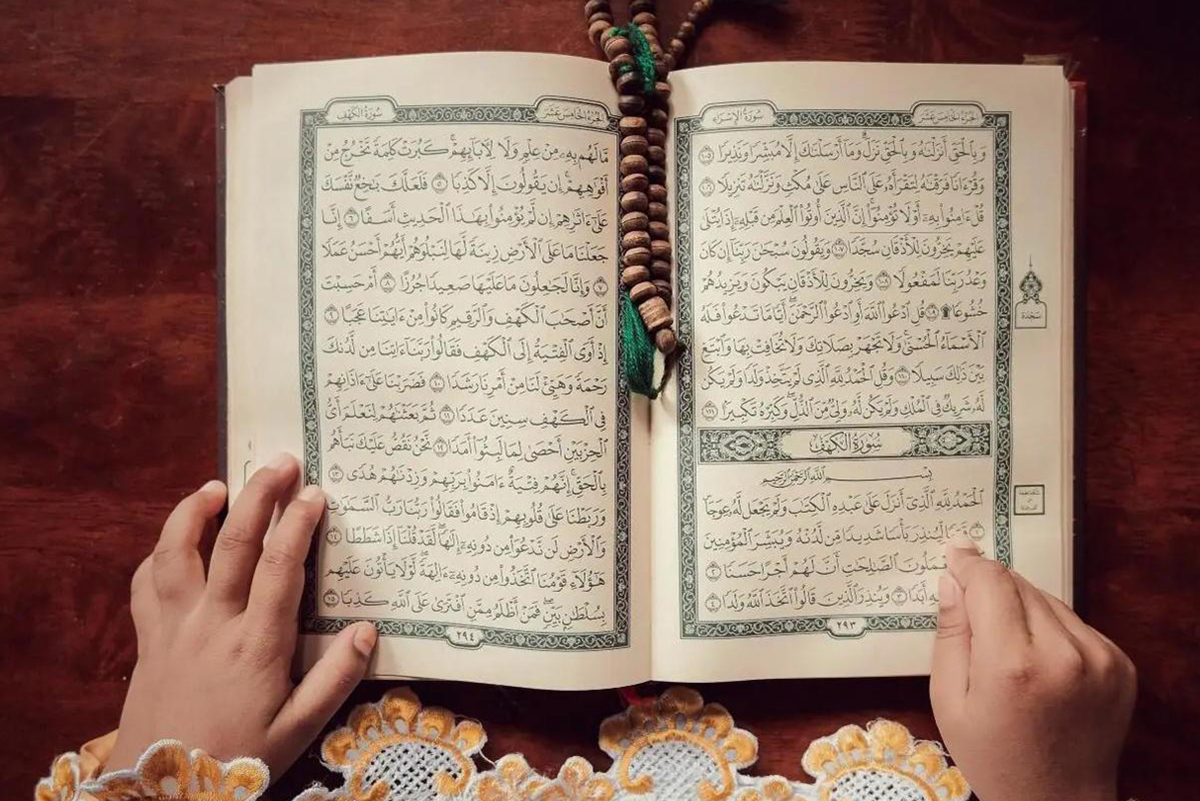 الجُزْءُ الخَامِسَ عَشَرَ
سُورَةُ الإِسْرَاءِ
وَبِالْحَقِّ أَنزَلْنَٰهُ وَبِالْحَقِّ نَزَلَۗ وَمَآ أَرْسَلْنَٰكَ إِلَّا مُبَشِّرًا وَنَذِيرًا ١٠٥
وَقُرْءَانًا فَرَقْنَٰهُ لِتَقْرَأَهُۥ عَلَى النَّاسِ عَلَىٰ مُكْثٍ وَنَزَّلْنَٰهُ تَنزِيلًا ١٠٦
قُلْ ءَامِنُوا۟ بِهِۦٓ أَوْ لَا تُؤْمِنُوٓا۟ۚ إِنَّ الَّذِينَ أُوتُوا۟ الْعِلْمَ مِن قَبْلِهِۦٓ إِذَا يُتْلَىٰ
عَلَيْهِمْ يَخِرُّونَ لِلْأَذْقَانِ سُجَّدًا ١٠٧ وَيَقُولُونَ سُبْحَٰنَ رَبِّنَآ إِن كَانَ
وَعْدُ رَبِّنَا لَمَفْعُولًا ١٠٨ وَيَخِرُّونَ لِلْأَذْقَانِ يَبْكُونَ وَيَزِيدُهُمْ
خُشُوعًا ۩ ١٠٩ قُلِ ادْعُوا۟ اللَّهَ أَوِ ادْعُوا۟ الرَّحْمَٰنَۖ أَيًّا مَّا تَدْعُوا۟ فَلَهُ
سَجْدَة
الْأَسْمَآءُ الْحُسْنَىٰۚ وَلَا تَجْهَرْ بِصَلَاتِكَ وَلَا تُخَافِتْ بِهَا وَابْتَغِ
بَيْنَ ذَٰلِكَ سَبِيلًا ١١٠ وَقُلِ الْحَمْدُ لِلَّهِ الَّذِى لَمْ يَتَّخِذْ وَلَدًا وَلَمْ يَكُن
لَّهُۥ شَرِيكٌ فِى الْمُلْكِ وَلَمْ يَكُن لَّهُۥ وَلِىٌّ مِّنَ الذُّلِّۖ وَكَبِّرْهُ تَكْبِيرًۢا ١١١
سُورَةُ الكَهْفِ
بِسْمِ اللَّهِ الرَّحْمَٰنِ الرَّحِيمِ
الْحَمْدُ لِلَّهِ الَّذِىٓ أَنزَلَ عَلَىٰ عَبْدِهِ الْكِتَٰبَ وَلَمْ يَجْعَل لَّهُۥ عِوَجَا
١ لِّيُنذِرَ بَأْسًا شَدِيدًا مِّن لَّدُنْهُ وَيُبَشِّرَ الْمُؤْمِنِينَ
يَعْمَلُونَ الصَّٰلِحَٰتِ أَنَّ لَهُمْ أَجْرًا حَسَنًا ٢
أَبَدًا ٣ وَيُنذِرَ الَّذِينَ قَالُوا۟ اتَّخَذَ اللَّهُ وَلَدًا ٤
٢٩٣
الجُزْءُ الخَامِسَ عَشَرَ
سُورَةُ الكَهْفِ
مَّا لَهُم بِهِۦ مِنْ عِلْمٍ وَلَا لِءَابَآئِهِمْۚ كَبُرَتْ كَلِمَةً تَخْرُجُ مِنْ
أَفْوَٰهِهِمْۚ إِن يَقُولُونَ إِلَّا كَذِبًا ٥ فَلَعَلَّكَ بَٰخِعٌ نَّفْسَكَ
عَلَىٰٓ ءَاثَٰرِهِمْ إِن لَّمْ يُؤْمِنُوا۟ بِهَٰذَا الْحَدِيثِ أَسَفًا ٦ إِنَّا
جَعَلْنَا مَا عَلَى الْأَرْضِ زِينَةً لَّهَا لِنَبْلُوَهُمْ أَيُّهُمْ أَحْسَنُ عَمَلًا
٧ وَإِنَّا لَجَٰعِلُونَ مَا عَلَيْهَا صَعِيدًا جُرُزًا ٨ أَمْ حَسِبْتَ
أَنَّ أَصْحَٰبَ الْكَهْفِ وَالرَّقِيمِ كَانُوا۟ مِنْ ءَايَٰتِنَا عَجَبًا ٩
إِذْ أَوَى الْفِتْيَةُ إِلَى الْكَهْفِ فَقَالُوا۟ رَبَّنَآ ءَاتِنَا مِن لَّدُنكَ
رَحْمَةً وَهَيِّئْ لَنَا مِنْ أَمْرِنَا رَشَدًا ١٠ فَضَرَبْنَا عَلَىٰٓ ءَاذَانِهِمْ
فِى الْكَهْفِ سِنِينَ عَدَدًا ١١ ثُمَّ بَعَثْنَٰهُمْ لِنَعْلَمَ أَىُّ
الْحِزْبَيْنِ أَحْصَىٰ لِمَا لَبِثُوٓا۟ أَمَدًا ١٢ نَّحْنُ نَقُصُّ عَلَيْكَ نَبَأَهُم
بِالْحَقِّۚ إِنَّهُمْ فِتْيَةٌ ءَامَنُوا۟ بِرَبِّهِمْ وَزِدْنَٰهُمْ هُدًى ١٣
وَرَبَطْنَا عَلَىٰ قُلُوبِهِمْ إِذْ قَامُوا۟ فَقَالُوا۟ رَبُّنَا رَبُّ السَّمَٰوَٰتِ
وَالْأَرْضِ لَن نَّدْعُوَا۟ مِن دُونِهِۦٓ إِلَٰهًاۖ لَّقَدْ قُلْنَآ إِذًا شَطَطًا ١٤
هَٰٓؤُلَآءِ قَوْمُنَا اتَّخَذُوا۟ مِن دُونِهِۦٓ ءَالِهَةًۖ لَّوْلَا يَأْتُونَ عَلَيْهِم
بِسُلْطَٰنٍۭ بَيِّنٍۖ فَمَنْ أَظْلَمُ مِمَّنِ افْتَرَىٰ عَلَى اللَّهِ كَذِبًا ١٥
٢٩٤